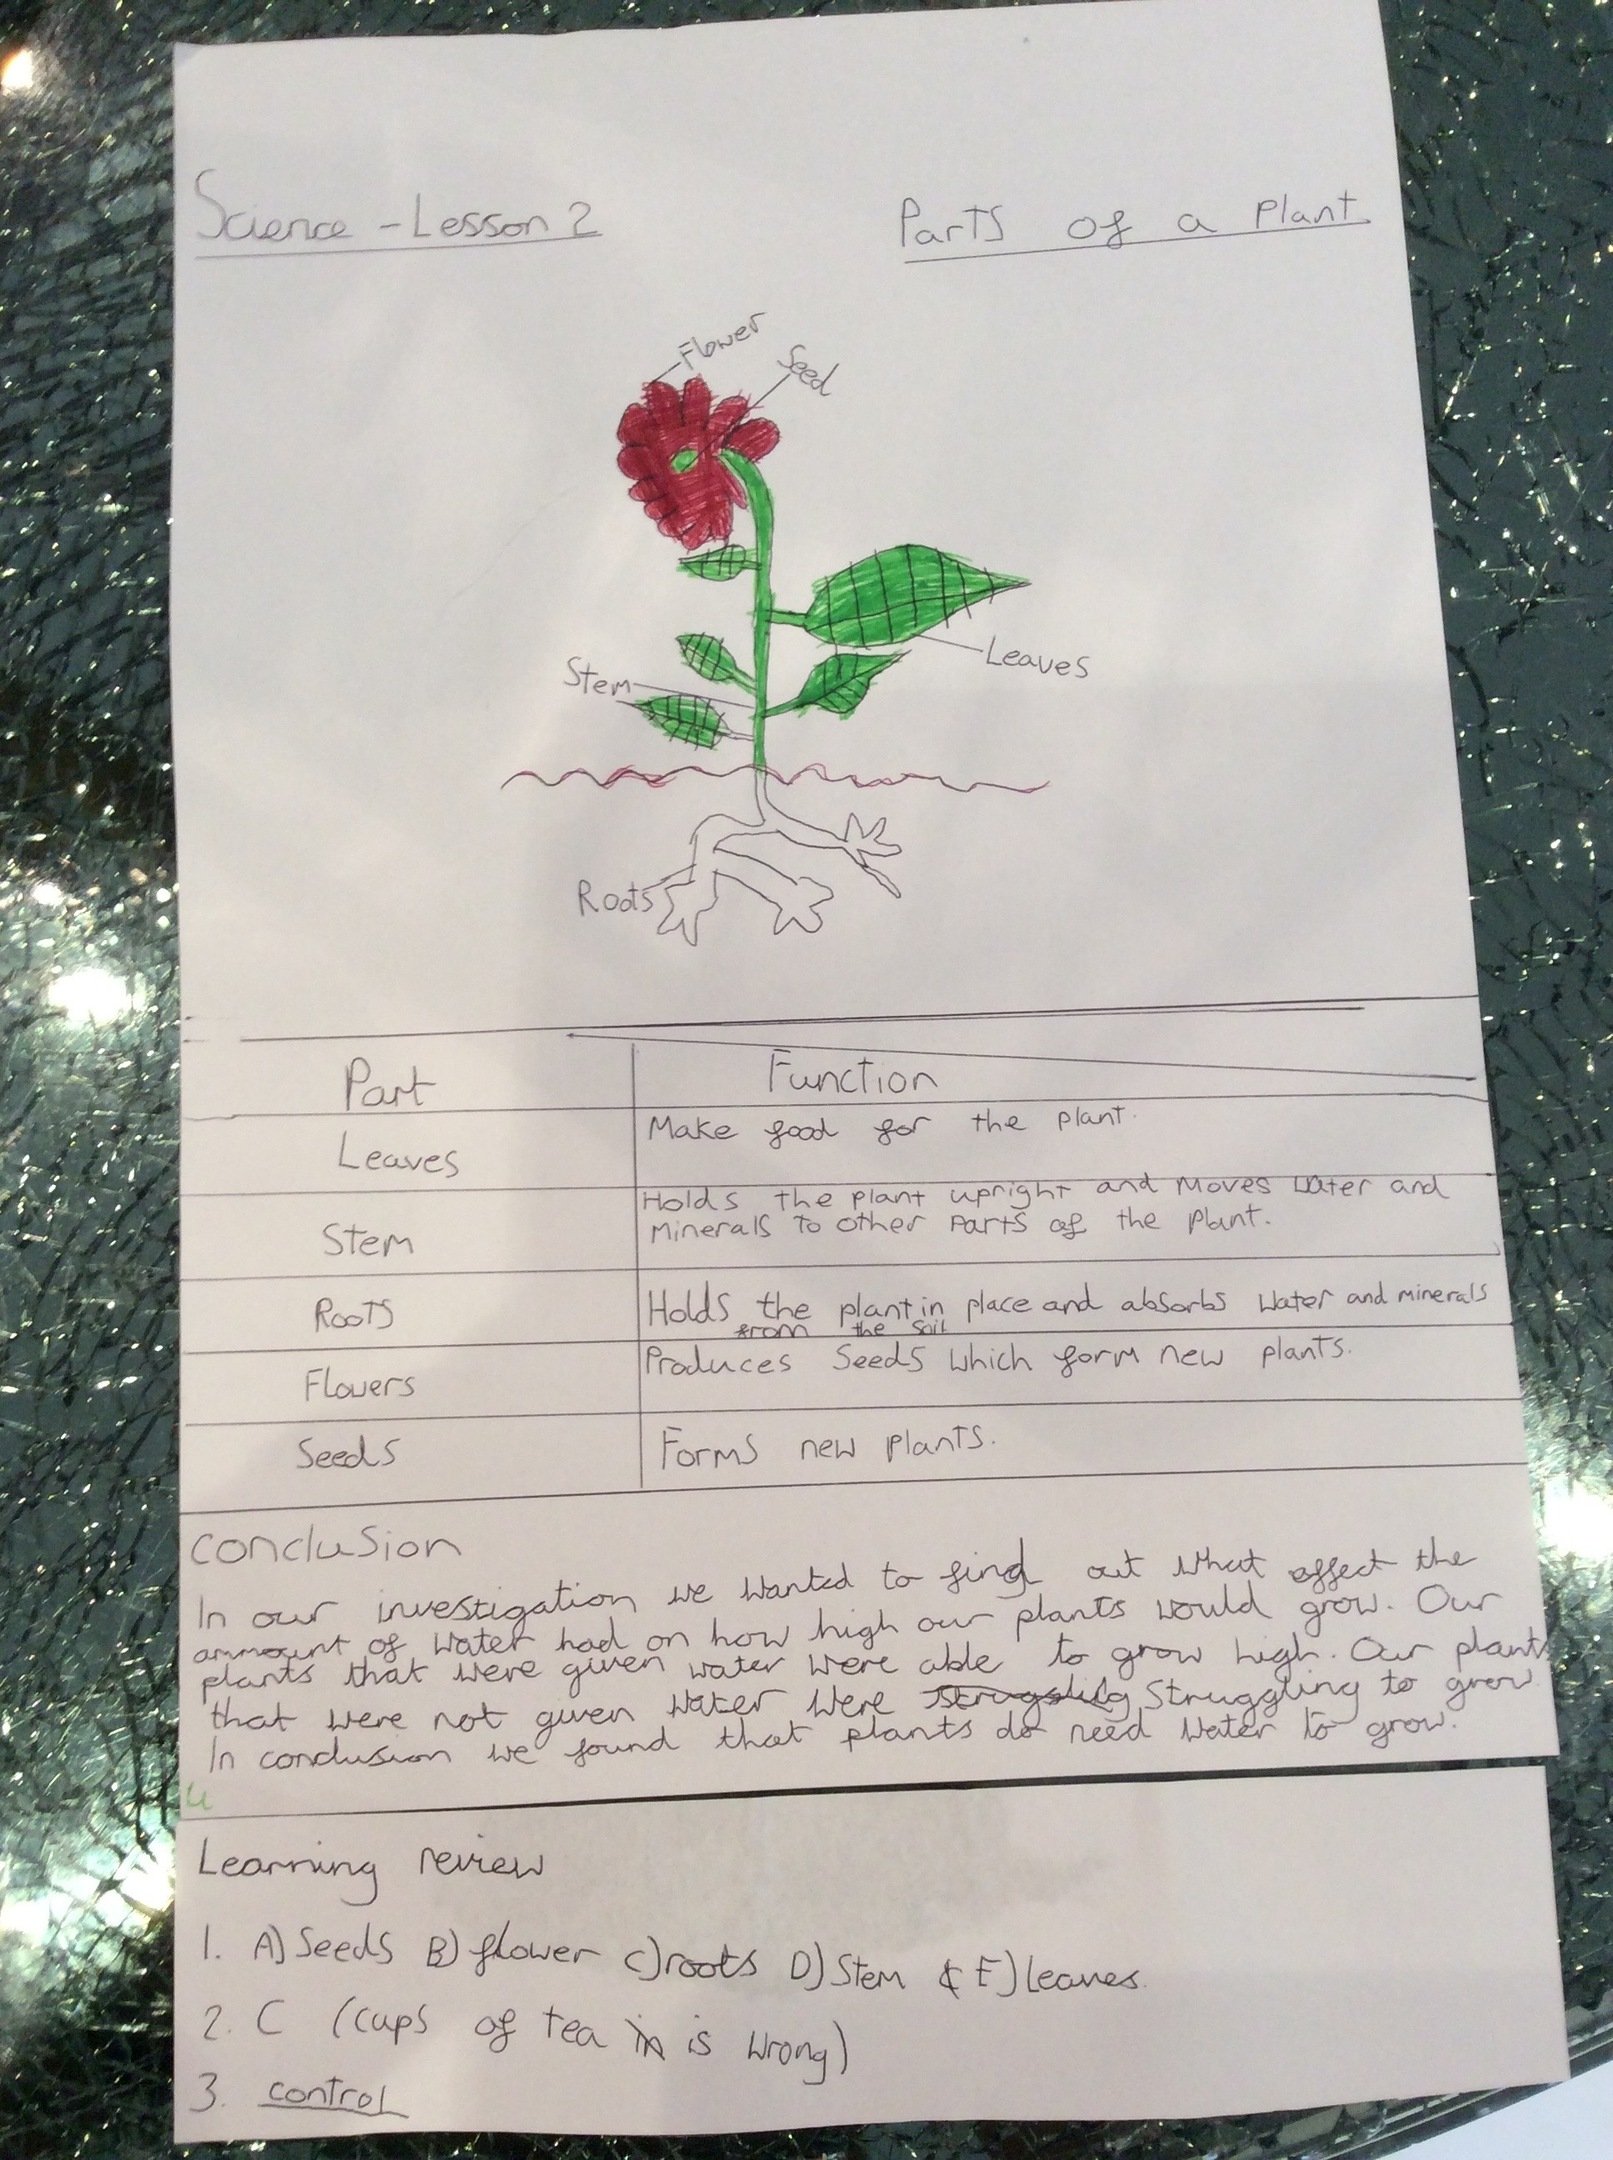 Science - Lesson 2
Parts of a Plant
Flower
Seed
Leaves
Stem
Roots
Part
Function
Leaves
Make food for the plant.
Stem
Holds the plant upright and moves water and
minerals to other parts of the plant.
Roots
Holds the plant in place and absorbs water and minerals
from the soil
Flowers
Produces seeds which form new plants.
Seeds
Forms new plants.
Conclusion
In our investigation we wanted to find out what effect the
ammount of water had on how high our plants would grow. Our
plants that were given water were able to grow high. Our plants
that were not given water were struggling to grow.
In conclusion we found that plants do need water to grow.
Learning review
1. A) Seeds B) flower C) roots D) Stem & E) leaves.
2. C (cups of tea is wrong)
3. control